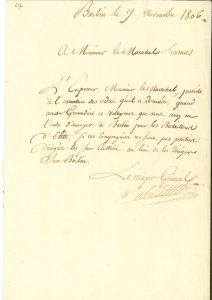 Berlin le 9 Novembre 1806
A Monsieur le Marechal Lannes
L'Empereur, Monsieur le Marechal,
à l'execution des ordres qu'il a donnés, quand
aux Grenadiers et voltigeurs que vous avez eu
l'ordre d'envoyer à Berlin pour les
d' si ces compagnies ne sont pas parties
dirigés les sur Custrin au lieu de les diriger
sur Berlin.
Le Major Général